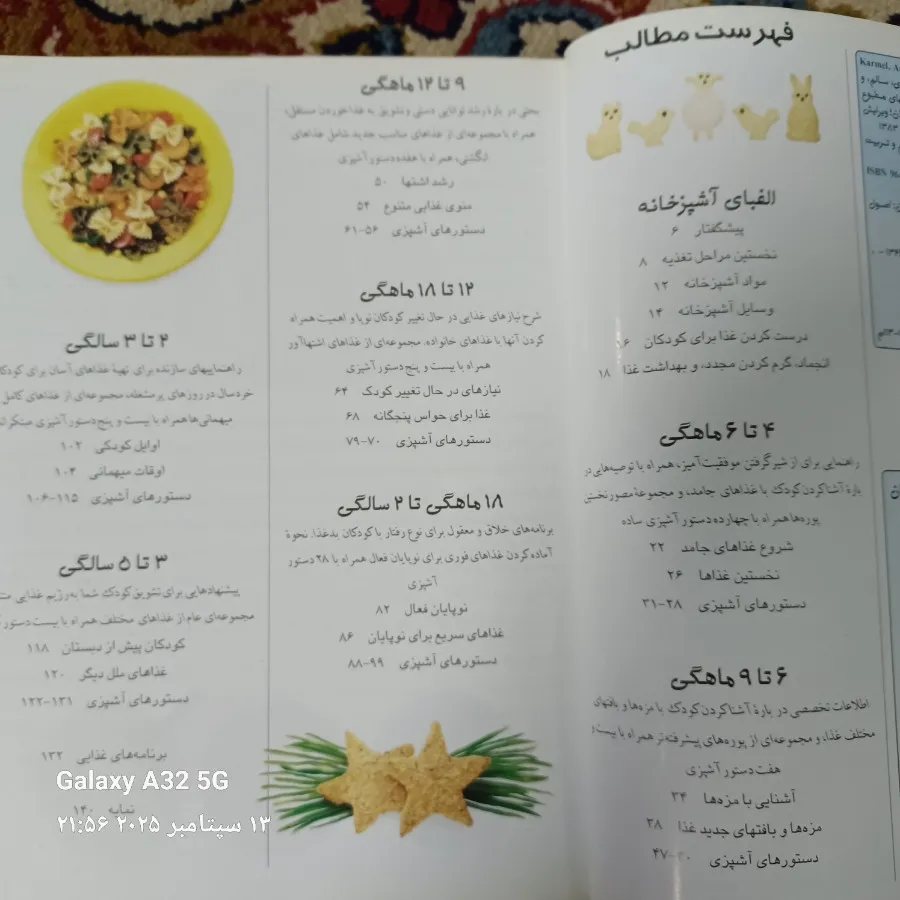 فهرست مطالب
الفبای آشپزخانه
پیشگفتار ۶
نخستین مراحل تغذیه ۸
مواد آشپزخانه ۱۲
وسایل آشپزخانه ۱۴
درست کردن غذا برای کودکان ۱۶
انجماد، گرم کردن مجدد، و بهداشت غذا ۱۸
۴ تا ۶ ماهگی
راهنمایی برای از شیر گرفتن موفقیت‌آمیز، همراه با توصیه‌هایی در
بارهٔ آشنا کردن کودک با غذاهای جامد، و مجموعهٔ مصور نخستین
پوره‌ها همراه با چهارده دستور آشپزی ساده
شروع غذاهای جامد ۲۲
نخستین غذاها ۲۶
دستورهای آشپزی ۲۸-۳۱
۶ تا ۹ ماهگی
اطلاعات تخصصی در بارهٔ آشنا کردن کودک با مزه‌ها و بافتهای
مختلف غذا، و مجموعه‌ای از پوره‌های پیشرفته‌تر همراه با بیست و
هفت دستور آشپزی
آشنایی با مزه‌ها ۳۴
مزه‌ها و بافتهای جدید غذا ۳۸
دستورهای آشپزی ۴۰-۴۷
۹ تا ۱۲ ماهگی
بحثی در بارهٔ رشد توانایی دستی و تشویق به غذا خوردن مستقل،
همراه با مجموعه‌ای از غذاهای مناسب جدید شامل غذاهای
انگشتی، همراه با هفده دستور آشپزی
رشد اشتها ۵۰
منوی غذایی متنوع ۵۴
دستورهای آشپزی ۵۶-۶۱
۱۲ تا ۱۸ ماهگی
شرح نیازهای غذایی در حال تغییر کودکان نوپا و اهمیت همراه
کردن آنها با غذاهای خانواده. مجموعه‌ای از غذاهای اشتهاآور
همراه با بیست و پنج دستور آشپزی
نیازهای در حال تغییر کودک ۶۴
غذا برای حواس پنجگانه ۶۸
دستورهای آشپزی ۷۰-۷۹
۱۸ ماهگی تا ۲ سالگی
برنامه‌های خلاق و معقول برای نوع رفتار با کودکان بدغذا. نحوهٔ
آماده کردن غذاهای فوری برای نوپایان فعال همراه با ۲۸ دستور
آشپزی
نوپایان فعال ۸۲
غذاهای سریع برای نوپایان ۸۶
دستورهای آشپزی ۸۸-۹۹
۲ تا ۳ سالگی
راهنماییهای سازنده برای تهیهٔ غذاهای آسان برای
خردسال در روزهای پرمشغله، مجموعه‌ای از غذاهای کامل
میهمانی‌ها همراه با بیست و پنج دستور آشپزی
اوایل کودکی ۱۰۲
اوقات میهمانی ۱۰۴
دستورهای آشپزی ۱۰۶-۱۱۵
۳ تا ۵ سالگی
پیشنهادهایی برای تشویق کودک شما به رژیم غذایی
مجموعه‌ای عام از غذاهای مختلف همراه با بیست
کودکان پیش از دبستان ۱۱۸
غذاهای ملل دیگر ۱۲۰
دستورهای آشپزی ۱۲۲-۱۳۱
برنامه‌های غذایی ۱۳۲
نمایه ۱۴۰
Karmel, A
ISBN 96
Galaxy A32 5G
۱۳ سپتامبر ۲۰۲۵ ۲۱:۵۶